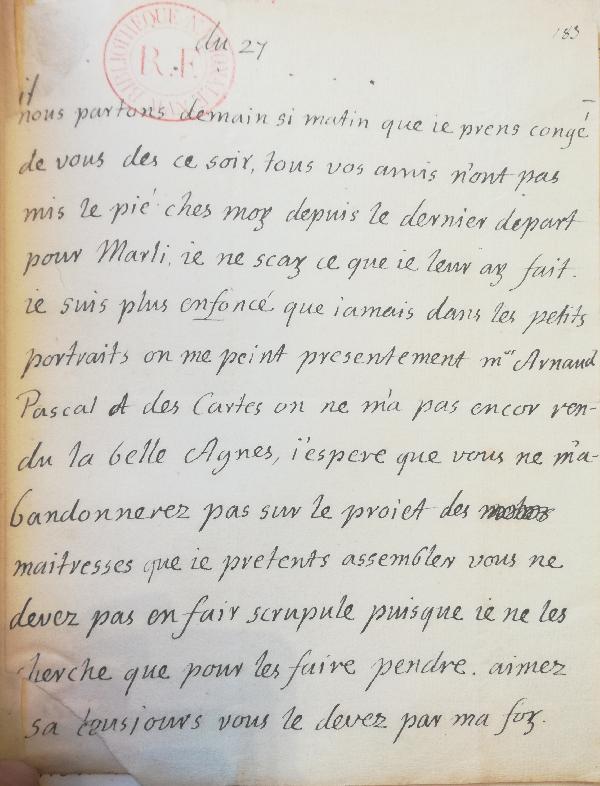 183
BIBLIOTHEQUE NATIONALE
R.F.
du 27
il
nous partons demain si matin que ie prens congé
de vous des ce soir, tous vos amis n'ont pas
mis le pié ches moy depuis le dernier depart
pour Marli, ie ne scay ce que ie leur ay fait.
ie suis plus enfoncé que iamais dans les petits
portraits on me peint presentement mrs Arnaud
Pascal et des Cartes on ne m'a pas encor ren-
du la belle Agnes, i'espere que vous ne m'a-
bandonnerez pas sur le proiet des
maitresses que ie pretents assembler vous ne
devez pas en fair scrupule puisque ie ne les
cherche que pour les faire pendre. aimez
sa tousjours vous le devez par ma foy.